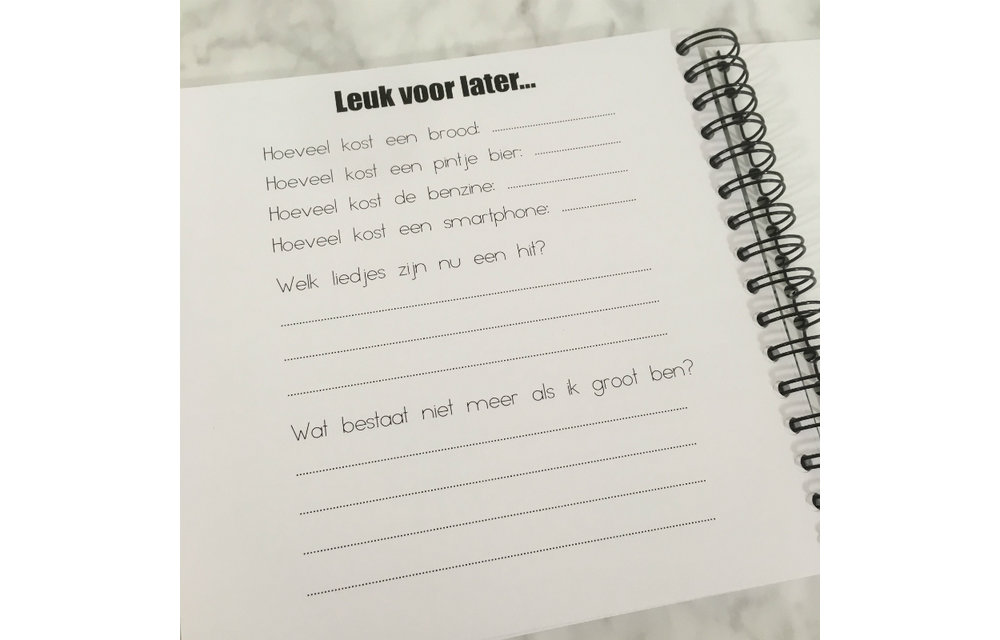 Leuk voor later...
Hoeveel kost een brood:
Hoeveel kost een pintje bier:
Hoeveel kost de benzine:
Hoeveel kost een smartphone:
Welk liedjes zijn nu een hit?
Wat bestaat niet meer als ik groot ben?